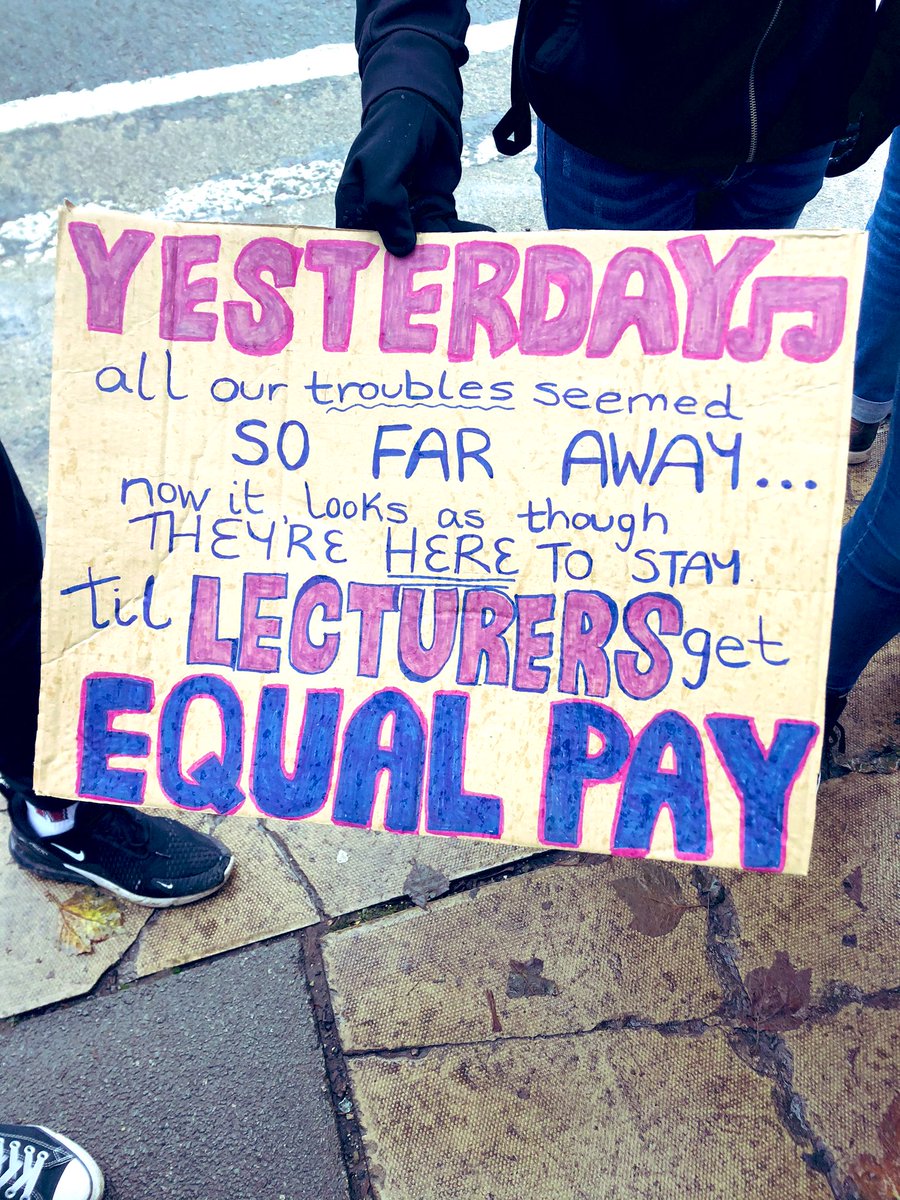 YESTERDAY♫
all our troubles seemed
SO FAR AWAY...
now it looks as though
THEY'RE HERE TO STAY
til LECTURERS get
EQUAL PAY